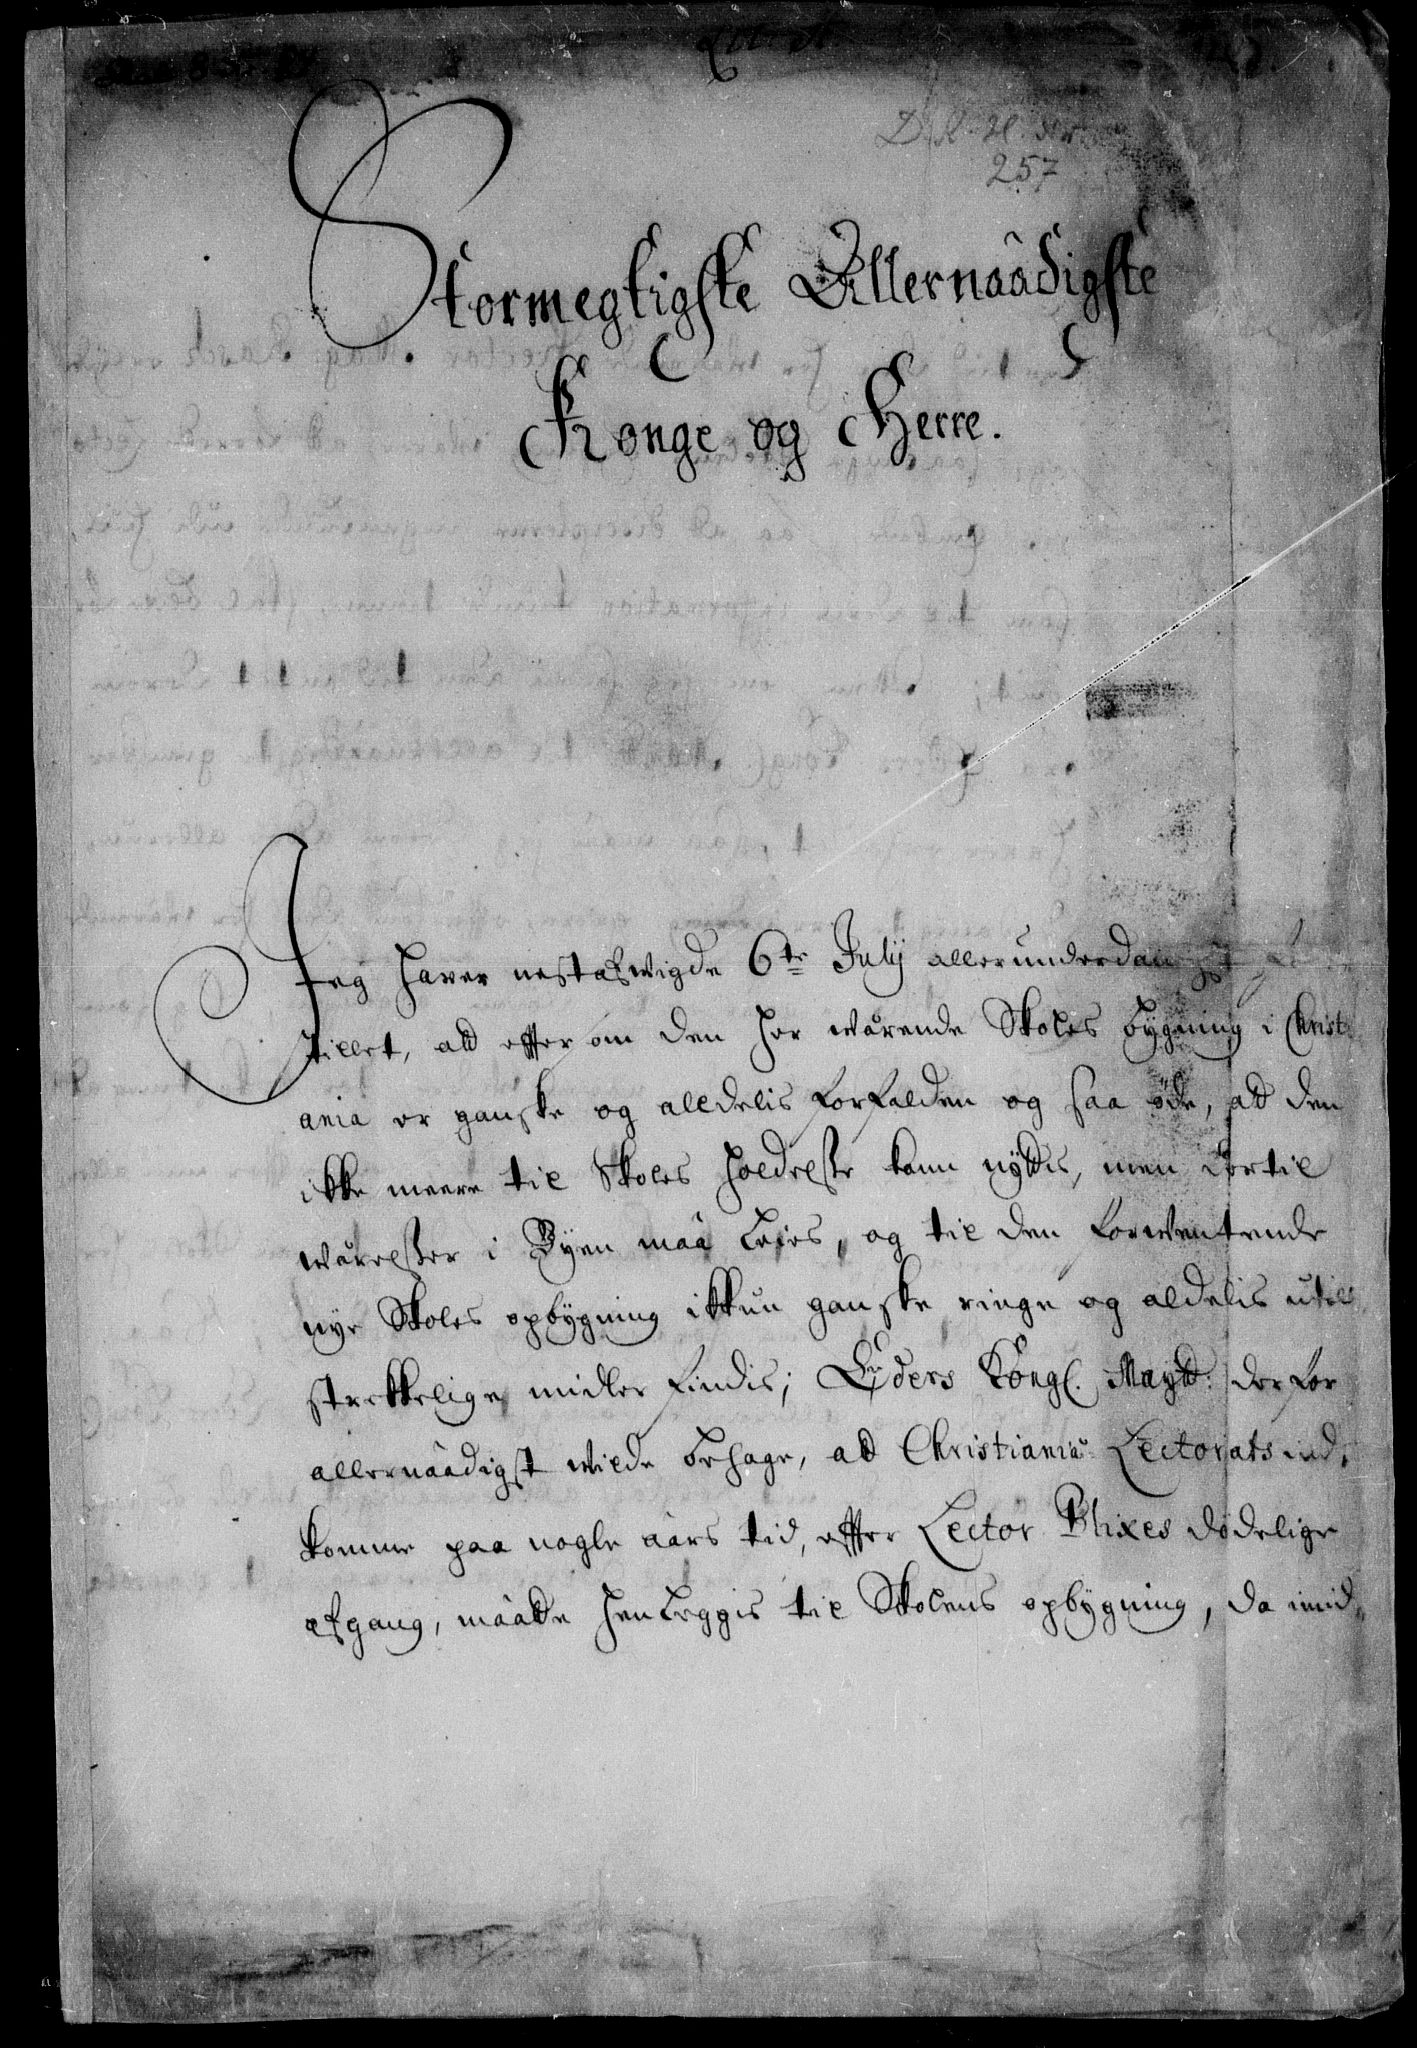 Litr A.
257
Stormegtigste Allernaadigste
Konge og Herre.
Jeg hafver nestafvigde 6te July allerunderdanigst
stillet, att effter som den her wærende Skoles bygning i Christi
ania er ganske og alldelis forfalden og saa öde, att den
ikke meere til Skoles holdelse kann nyttis, men dertil
wærelser i Byen maa leies, og til den forwentende
nye Skoles opbygning ikkun ganske ringe og aldelis util
strekkelige midler findis; Eders Kongl. Maytt. derfor
allernaadigst wilde behage, att Christianiæ Lectorats ind,,
komme paa nogle aars tid, effter Lector Blixes dödelige
afgang, maatte henleggis til Skolens opbygning, da imid,,